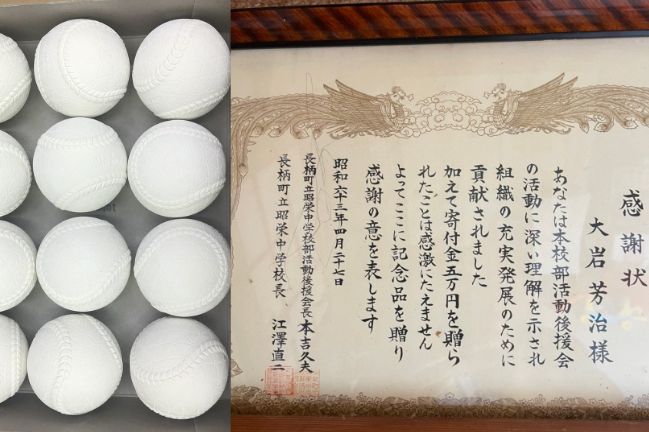 感謝状
大岩芳治様
あなたは本校部活動後援会
の活動に深い理解を示され
組織の充実発展のために
貢献されました
加えて寄付金五万円を贈ら
れたことは感激にたえません
よってここに記念品を贈り
感謝の意を表します
昭和六十三年四月二十七日
長柄町立昭栄中学校部活動後援会長 本吉久夫
長柄町立昭栄中学校長、 江澤直二